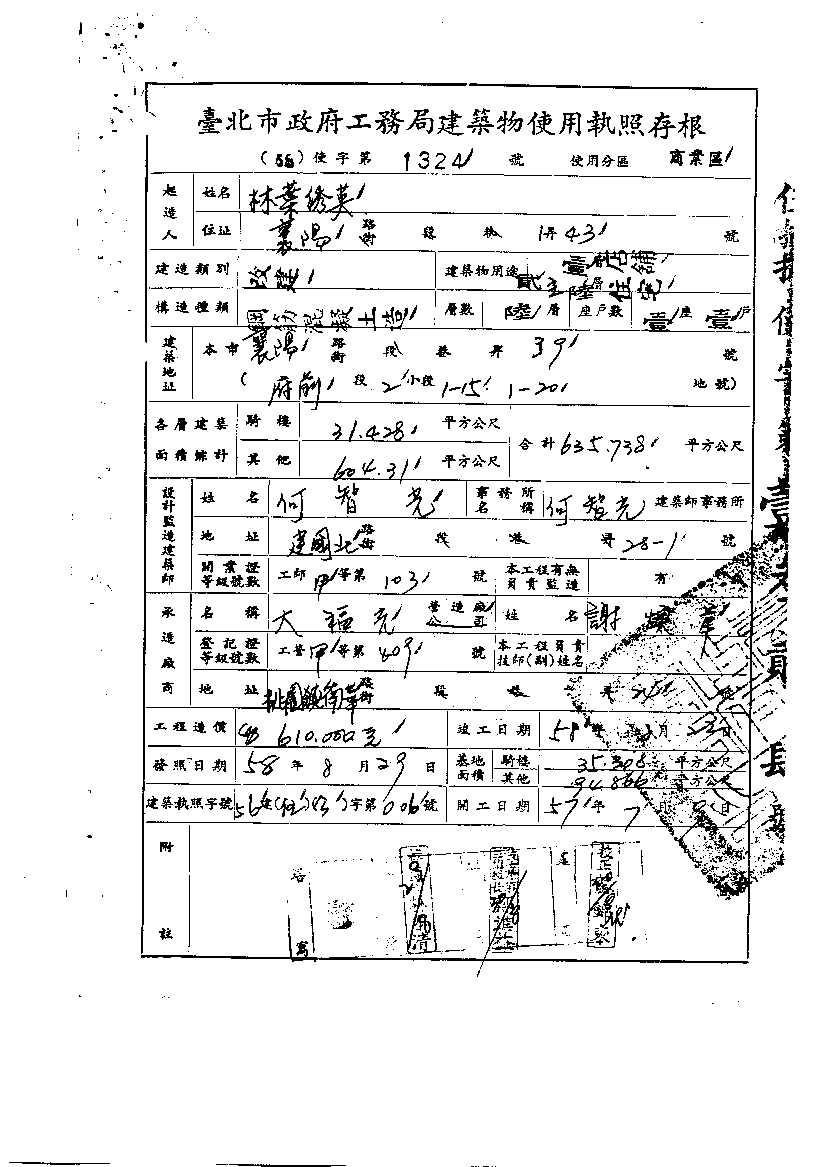 臺北市政府工務局建築物使用執照存根
(58) 使字第 1324 號 使用分區 商業區
起造人 姓名 林葉綉英
住址 襄陽 路街 段 巷 弄 43 號
建造類別 改建 建築物用途 壹層店舖 貳至陸層住宅
構造種類 鋼筋混凝土造 層數 陸 層 座戶數 壹 座 壹 戶
建築地址 本市 襄陽 路街 段 巷 弄 39 號
(府前 段 2 小段 1-15 1-20 地號)
各層建築面積總計 騎樓 31.428 平方公尺 合計 635.738 平方公尺
其他 604.31 平方公尺
設計監造建築師 姓名 何智 事務所名稱 何智 建築師事務所
地址 建國北 路街 段 巷 弄 28-1 號
開業證等級號數 工師 甲 等第 103 號 本工程有無負責監造 有
承造廠商 名稱 大福 營造廠公司 姓名 謝
登記證等級號數 工營 甲 等第 409 號 本工程負責技師(副)姓名
地址 桃園鎮 路街 段 巷 弄 號
工程造價 610.000元 竣工日期 58 年 月 日
發照日期 58 年 8 月 29 日 基地面積 騎樓 35.308 平方公尺
其他 94.866 平方公尺
建築執照字號 56 建 字第 006 號 開工日期 57 年 7 月 日
附註